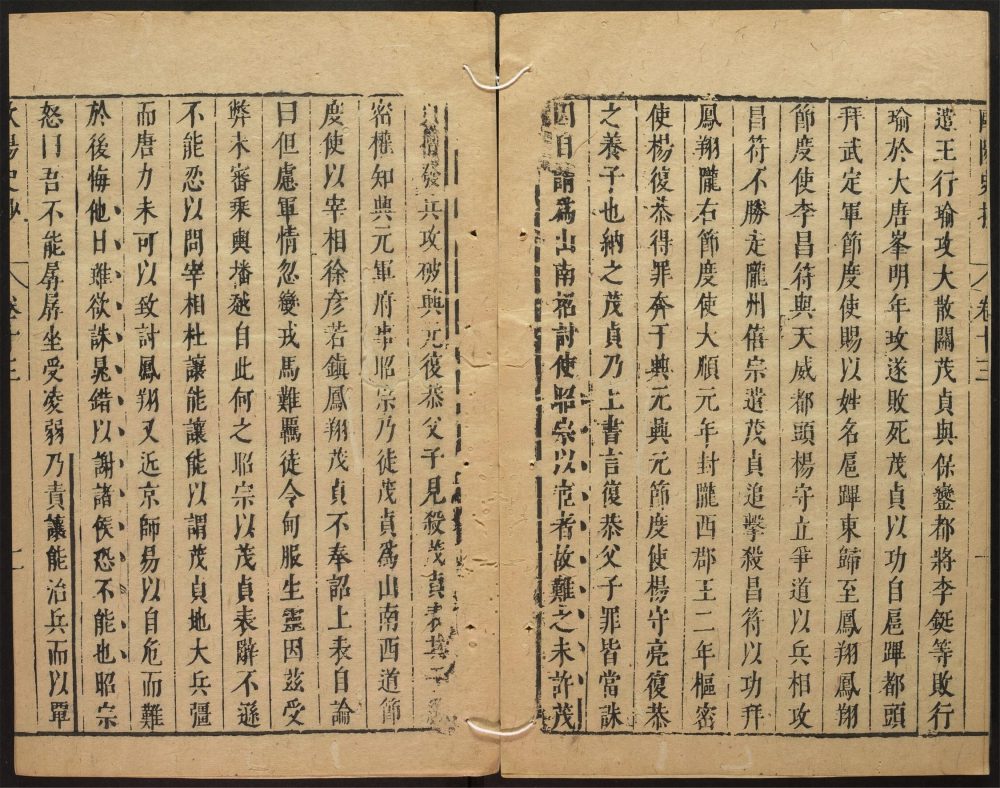 歐陽史抄 卷十三
遣王行瑜攻大散關茂貞與保鑾都將李鋋等敗行
瑜於大唐峯明年玫遂敗死茂貞以功自扈蹕都頭
拜武定軍節度使賜以姓名扈蹕東歸至鳳翔鳳翔
節度使李昌符與天威都頭楊守立爭道以兵相攻
昌符不勝走隴州僖宗遣茂貞追擊殺昌符以功拜
鳳翔隴右節度使大順元年封隴西郡王二年樞密
使楊復恭得罪奔于興元興元節度使楊守亮復恭
之養子也納之茂貞乃上書言復恭父子罪皆當誅
因自請爲山南招討使昭宗以宦者故難之未許茂
貞擅發兵攻破興元復恭父子見殺茂貞表其子
密權知興元軍府事昭宗乃徙茂貞爲山南西道節
度使以宰相徐彦若鎮鳳翔茂貞不奉詔上表自論
曰但慮軍情忽變戎馬難羈徒令甸服生靈因兹受
弊未審乘輿播越自此何之昭宗以茂貞表辭不遜
不能忍以問宰相杜讓能讓能以謂茂貞地大兵彊
而唐力未可以致討鳳翔又近京師易以自危而難
於後悔他日雖欲誅晁錯以謝諸侯恐不能也昭宗
怒曰吾不能孱孱坐受凌弱乃責讓能治兵而以覃
歐陽史抄 卷十三 十一